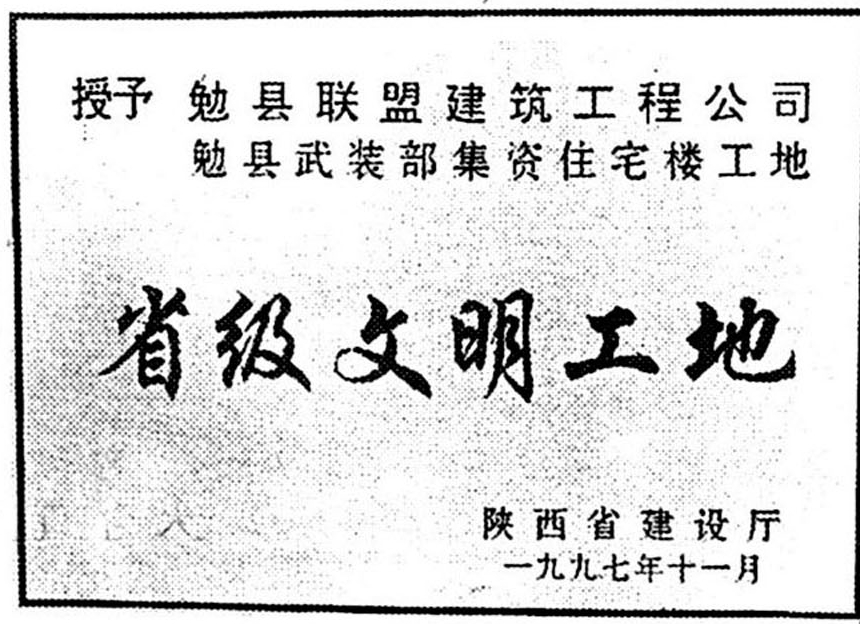 授予 勉县联盟建筑工程公司
勉县武装部集资住宅楼工地
省级文明工地
陕西省建设厅
一九九七年十一月